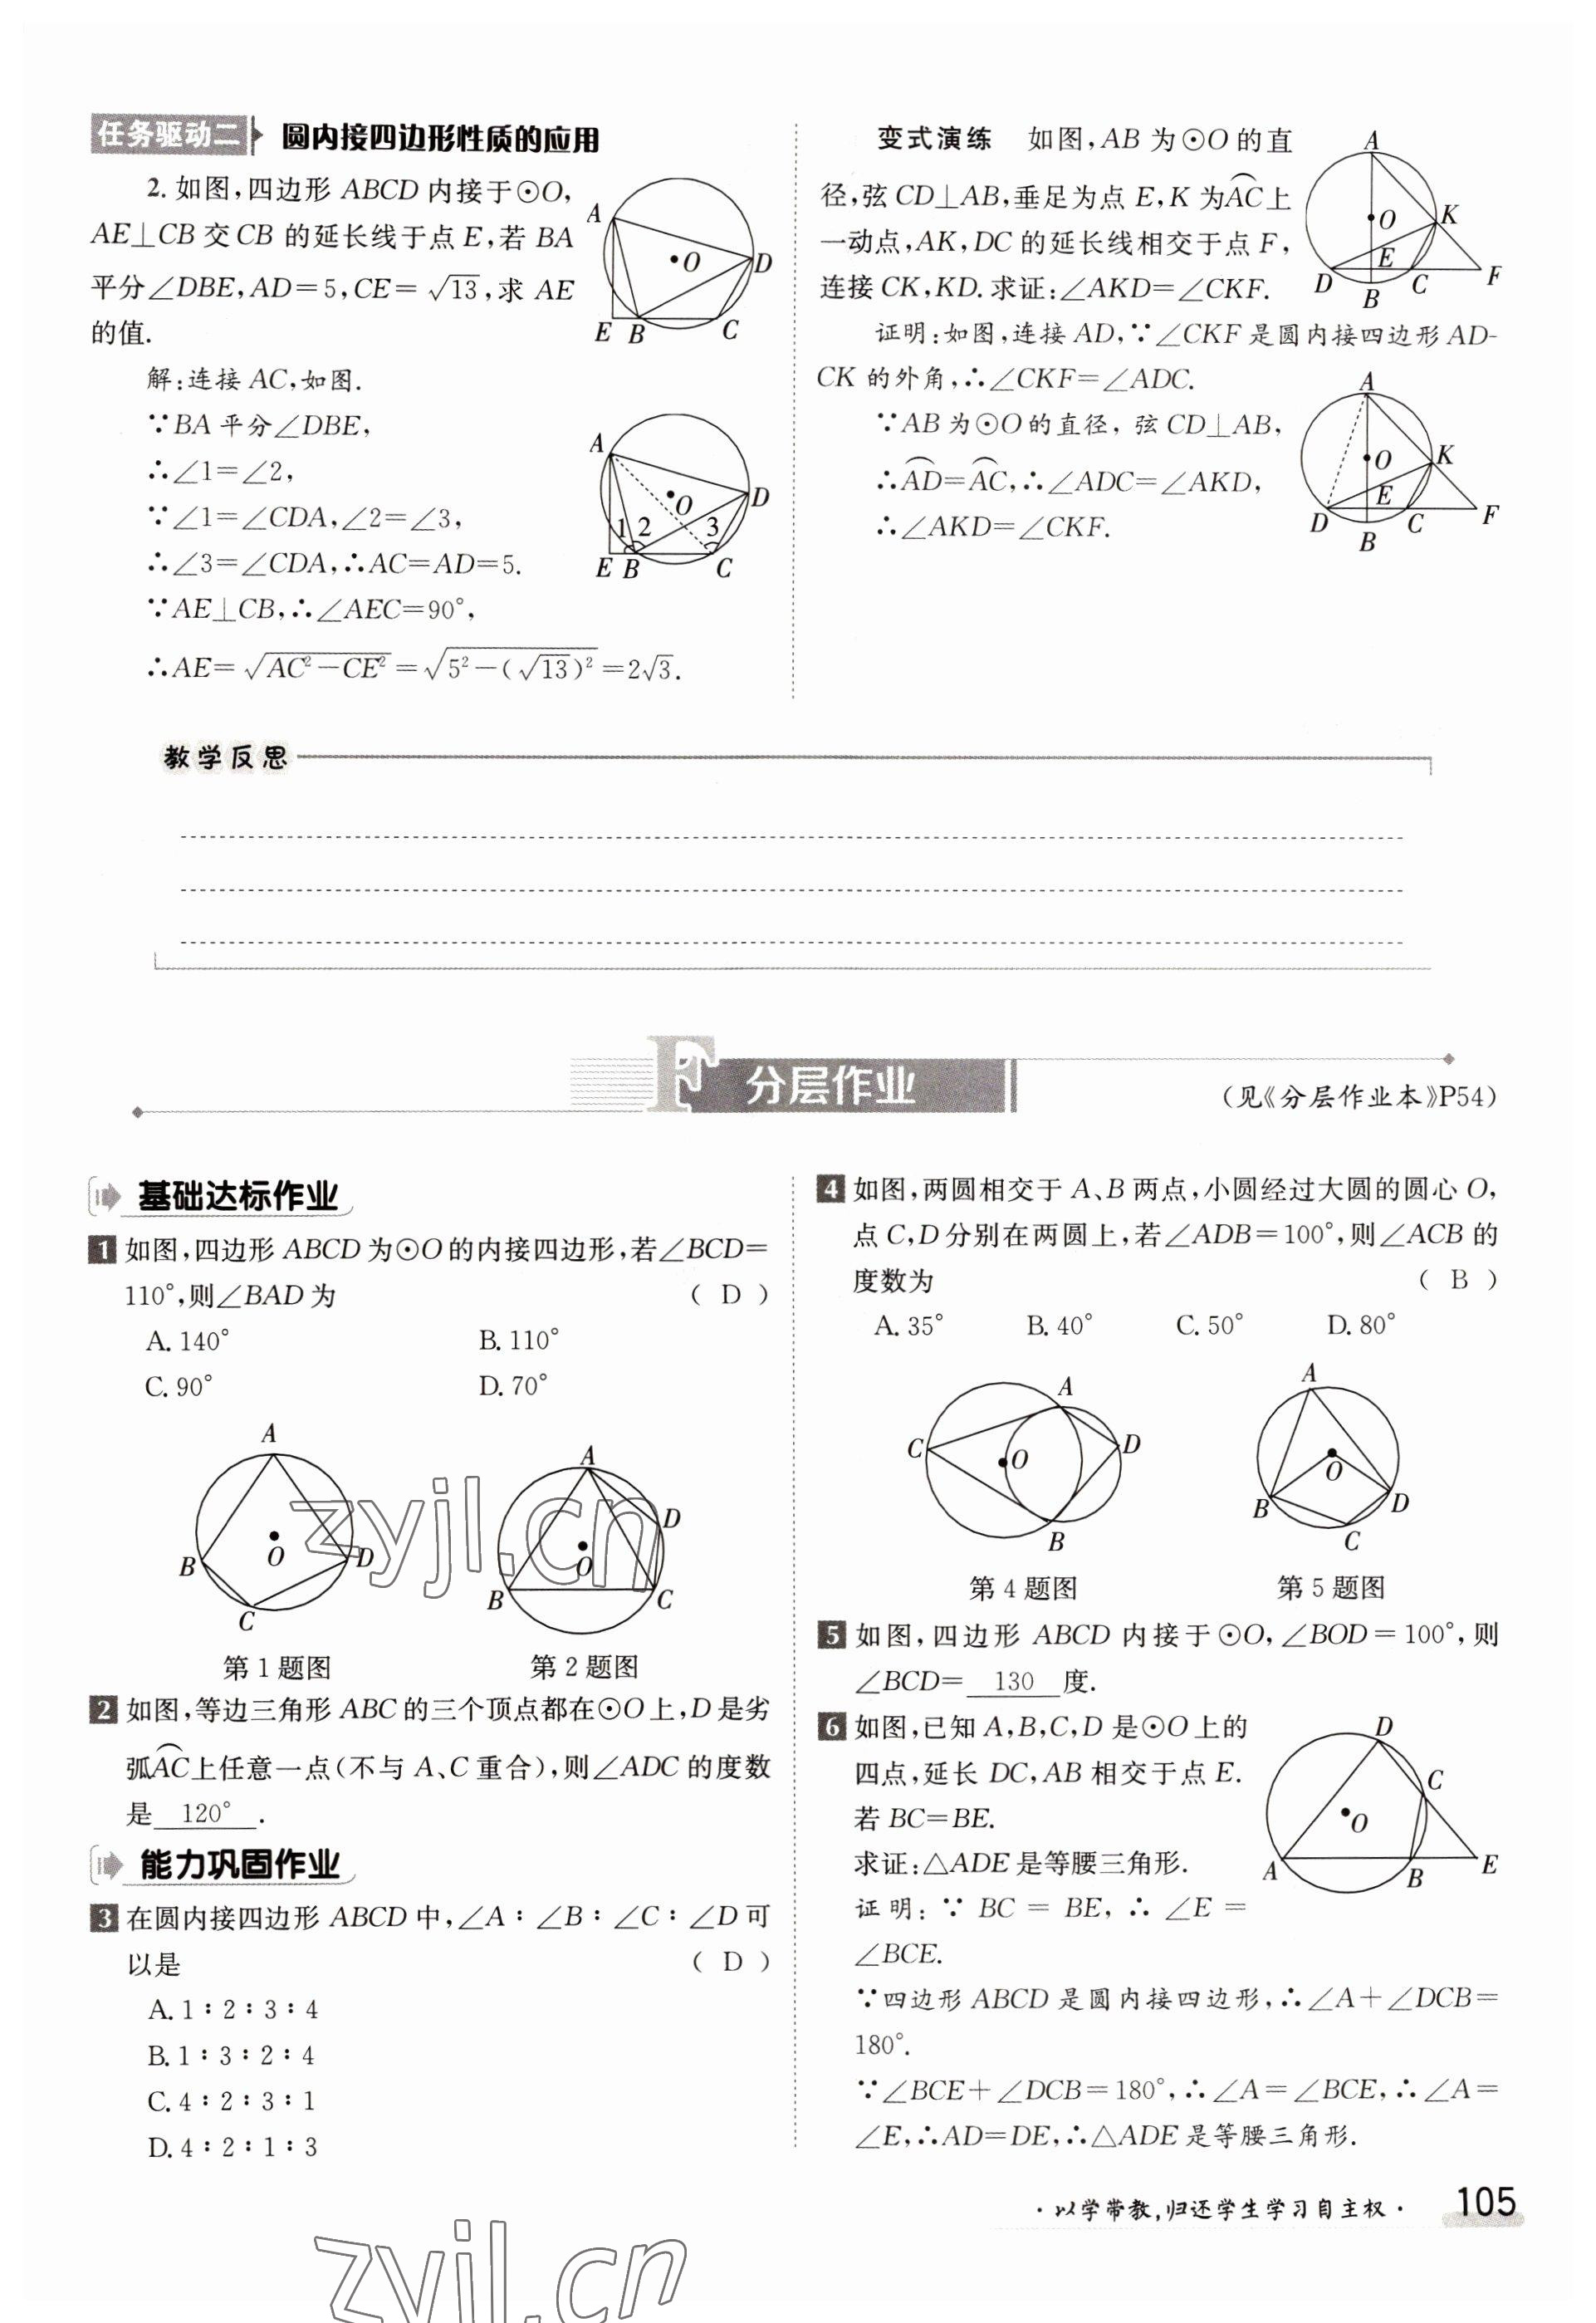 任务驱动二 圆内接四边形性质的应用
2. 如图,四边形 ABCD 内接于⊙O,
AE⊥CB 交 CB 的延长线于点 E,若 BA
平分∠DBE,AD=5,CE=√13,求 AE
的值.
解:连接 AC,如图.
∵BA 平分∠DBE,
∴∠1=∠2,
∵∠1=∠CDA,∠2=∠3,
∴∠3=∠CDA,∴AC=AD=5.
∵AE⊥CB,∴∠AEC=90°,
∴AE=√(AC²-CE²)=√(5²-(√13)²)=2√3.
A
O
D
E B C
A
O
D
1 2 3
E B C
变式演练 如图,AB 为⊙O 的直
径,弦 CD⊥AB,垂足为点 E,K 为⌒AC上
一动点,AK,DC 的延长线相交于点 F,
连接 CK,KD. 求证:∠AKD=∠CKF.
证明:如图,连接 AD,∵∠CKF 是圆内接四边形 AD-
CK 的外角,∴∠CKF=∠ADC.
∵AB 为⊙O 的直径,弦 CD⊥AB,
∴⌒AD=⌒AC,∴∠ADC=∠AKD,
∴∠AKD=∠CKF.
A
O K
E
D C F
B
A
O K
E
D C F
B
教学反思
F 分层作业
(见《分层作业本》P54)
基础达标作业
1 如图,四边形 ABCD 为⊙O 的内接四边形,若∠BCD=
110°,则∠BAD 为 ( D )
A. 140° B. 110°
C. 90° D. 70°
A
O
B D
C
第 1 题图
A
D
O
B C
第 2 题图
zyjl.cn
2 如图,等边三角形 ABC 的三个顶点都在⊙O 上,D 是劣
弧⌒AC上任意一点(不与 A、C 重合),则∠ADC 的度数
是 120° .
能力巩固作业
3 在圆内接四边形 ABCD 中,∠A∶∠B∶∠C∶∠D 可
以是 ( D )
A. 1∶2∶3∶4
B. 1∶3∶2∶4
C. 4∶2∶3∶1
D. 4∶2∶1∶3
4 如图,两圆相交于 A、B 两点,小圆经过大圆的圆心 O,
点 C,D 分别在两圆上,若∠ADB=100°,则∠ACB 的
度数为 ( B )
A. 35° B. 40° C. 50° D. 80°
A
C O D
B
第 4 题图
A
O
B D
C
第 5 题图
5 如图,四边形 ABCD 内接于⊙O,∠BOD=100°,则
∠BCD= 130 度.
6 如图,已知 A,B,C,D 是⊙O 上的
四点,延长 DC,AB 相交于点 E.
若 BC=BE.
求证:△ADE 是等腰三角形.
D
C
O
A B E
证明:∵BC=BE,∴∠E=
∠BCE.
∵四边形 ABCD 是圆内接四边形,∴∠A+∠DCB=
180°.
∵∠BCE+∠DCB=180°,∴∠A=∠BCE,∴∠A=
∠E,∴AD=DE,∴△ADE 是等腰三角形.
·以学带教,归还学生学习自主权· 105
zyjl.cn